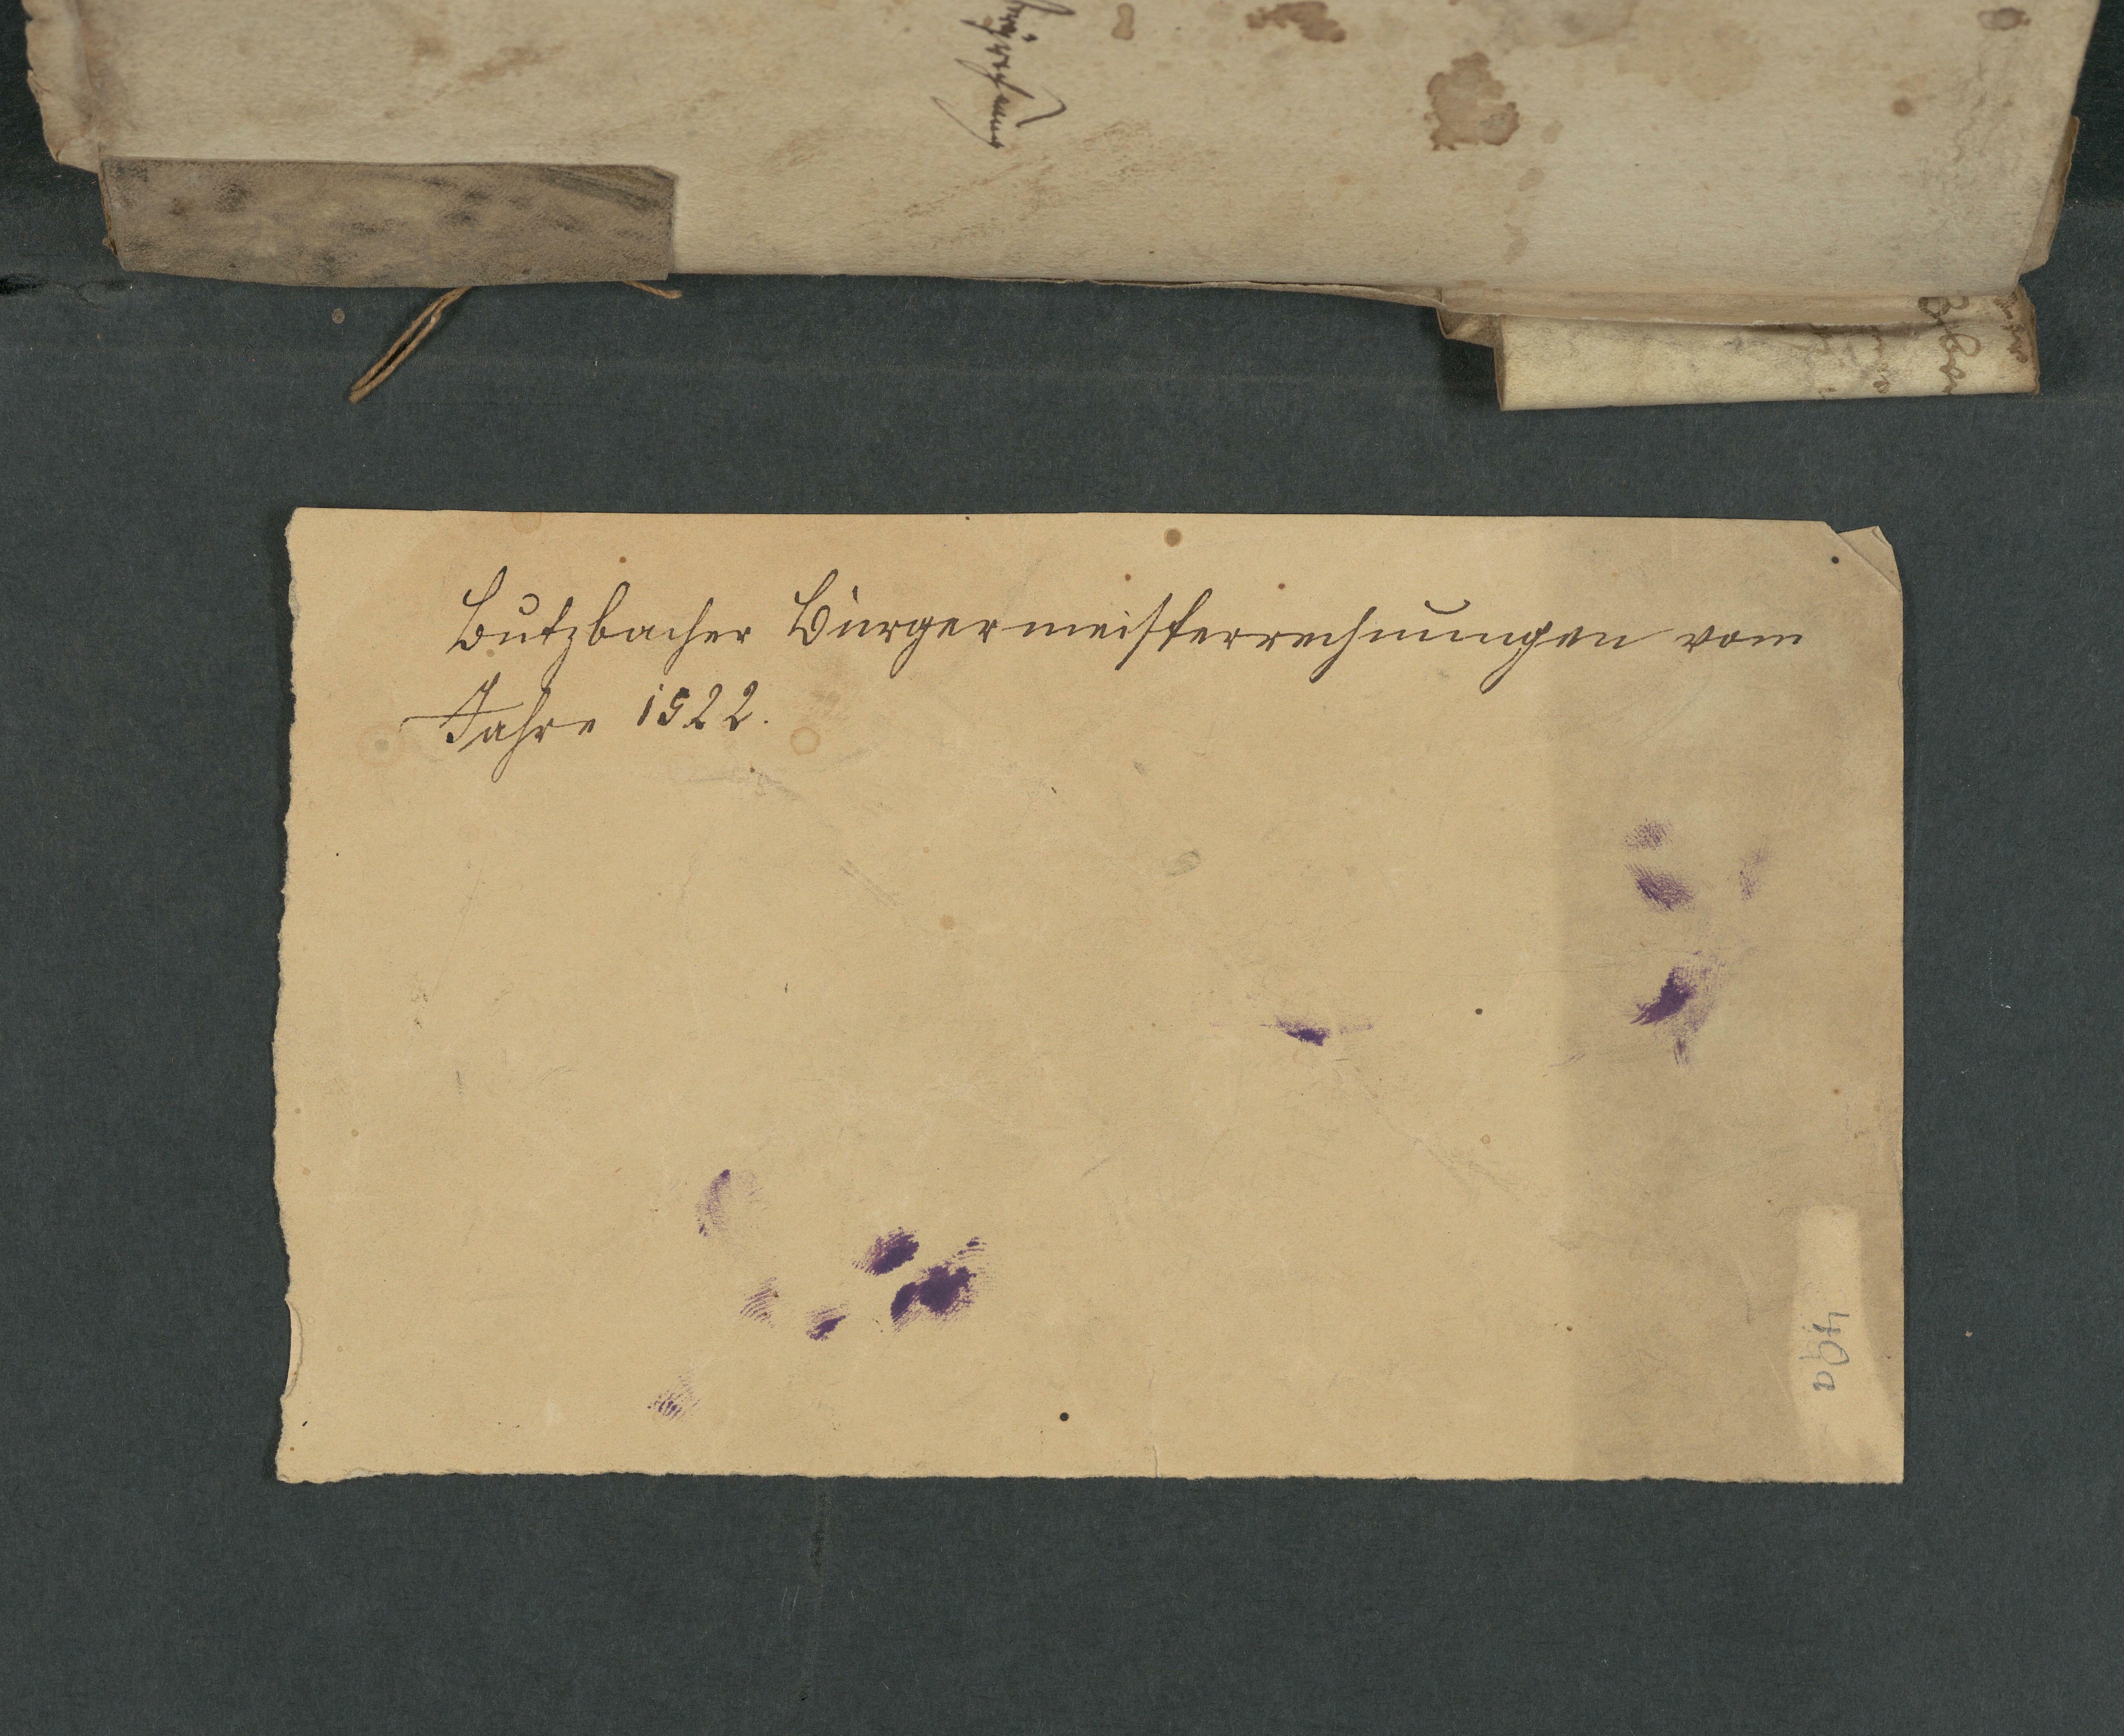 Butzbacher Bürgermeisterrechnungen vom
Jahre 1522.
49a